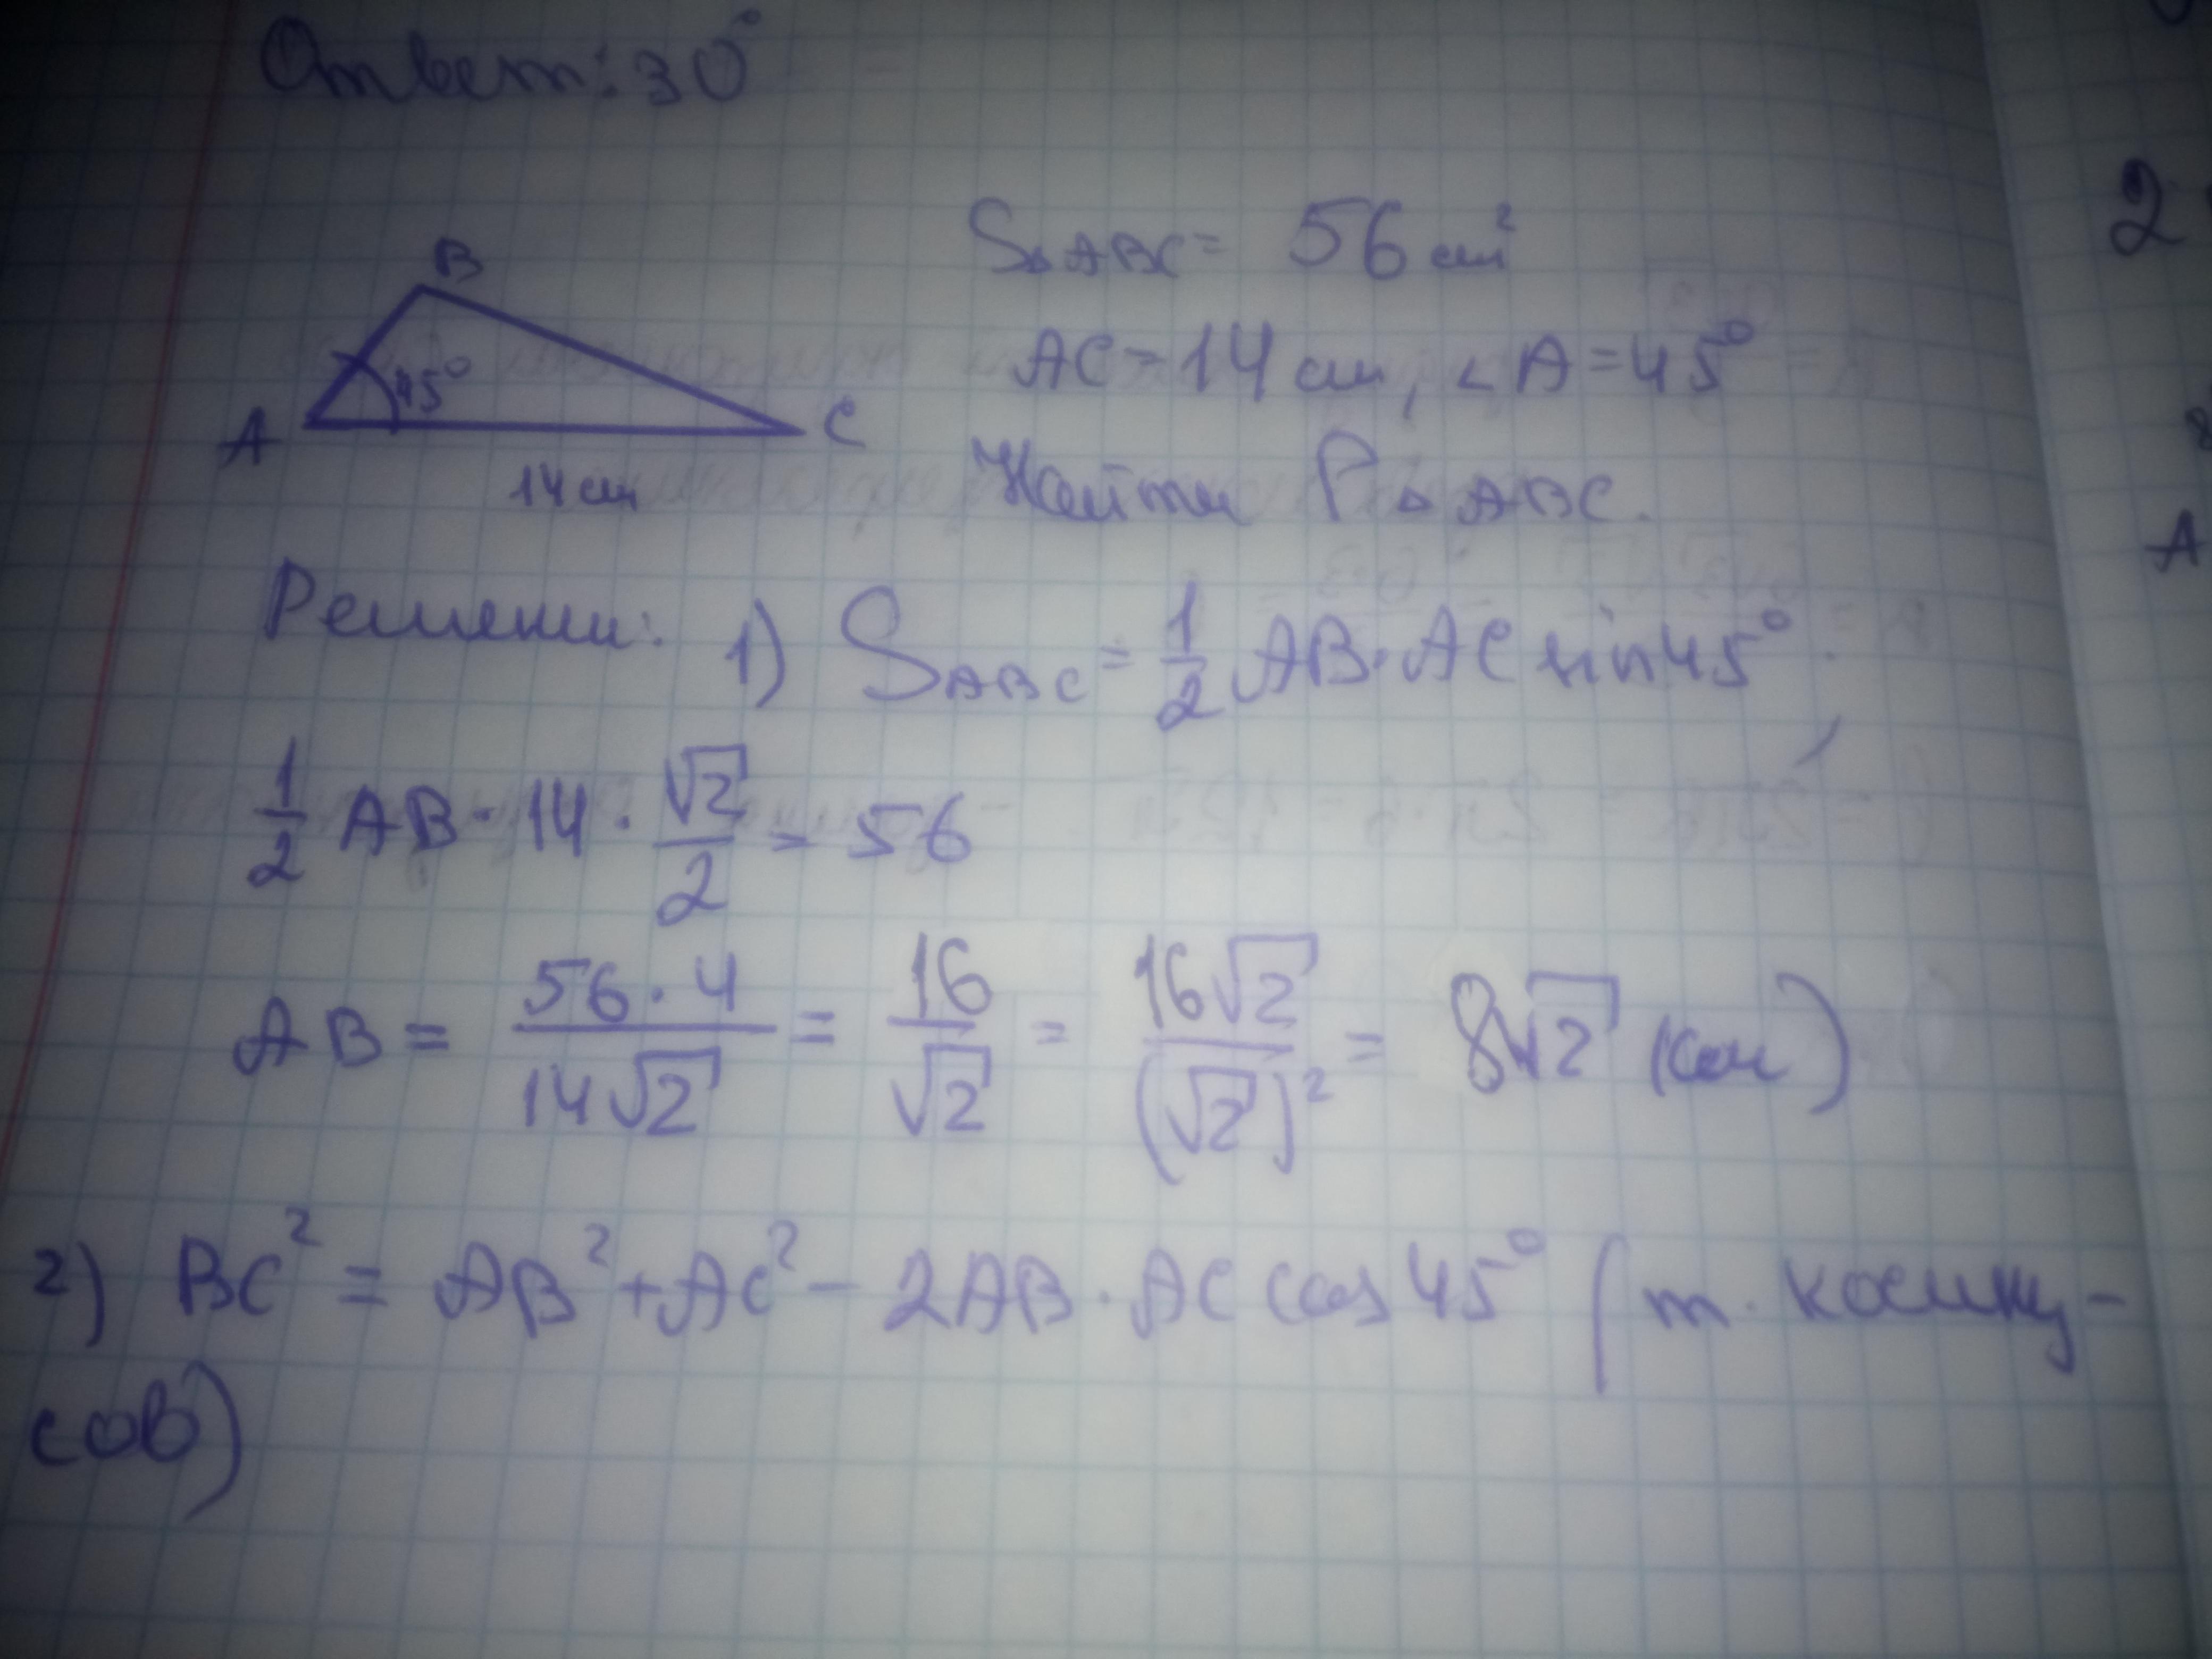 Ответ: 30°
B
45°
A
C
14 см
S△ABC = 56 см²
AC = 14 см, ∠A = 45°
Найти P△ABC.
Решени: 1) SABC = 1/2 AB · AC sin 45°,
1/2 AB · 14 · √2/2 = 56
AB = 56·4/14√2 = 16/√2 = 16√2/(√2)² = 8√2 (см)
2) BC² = AB² + AC² - 2AB · AC cos 45° (т. косину-
сов)
2
8
A